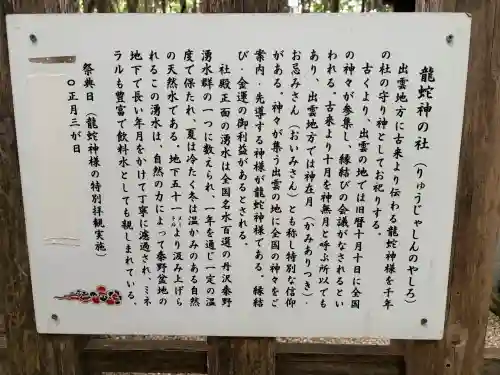 龍蛇神の社 （りゅうじゃしんのやしろ）
出雲地方に古来より伝わる龍蛇神様を千年
の社の守り神としてお祀りする。
古くより、出雲の地では旧暦十月十日に全国
の神々が参集し、縁結びの会議がなされるとい
われる。古来より十月を神無月と呼ぶ所以でも
あり、出雲地方では神在月（かみありつき）・
お忌みさん（おいみさん）とも称し特別な信仰
がある。神々が集う出雲の地に全国の神々をご
案内・先導する神様が龍蛇神様である。縁結
び・金運の御利益があるとされる。
社殿正面の湧水は全国名水百選の丹沢秦野
湧水群の一つに数えられ、一年を通じ一定の温
度で保たれ、夏は冷たく冬は温かみのある自然
の天然水である。地下五十㍍より汲み上げら
れるこの湧水は、自然の力によって秦野盆地の
地下で長い年月をかけて丁寧に濾過され、ミネ
ラルも豊富で飲料水としても親しまれている。
祭典日（龍蛇神様の特別拝観実施）
〇正月三が日